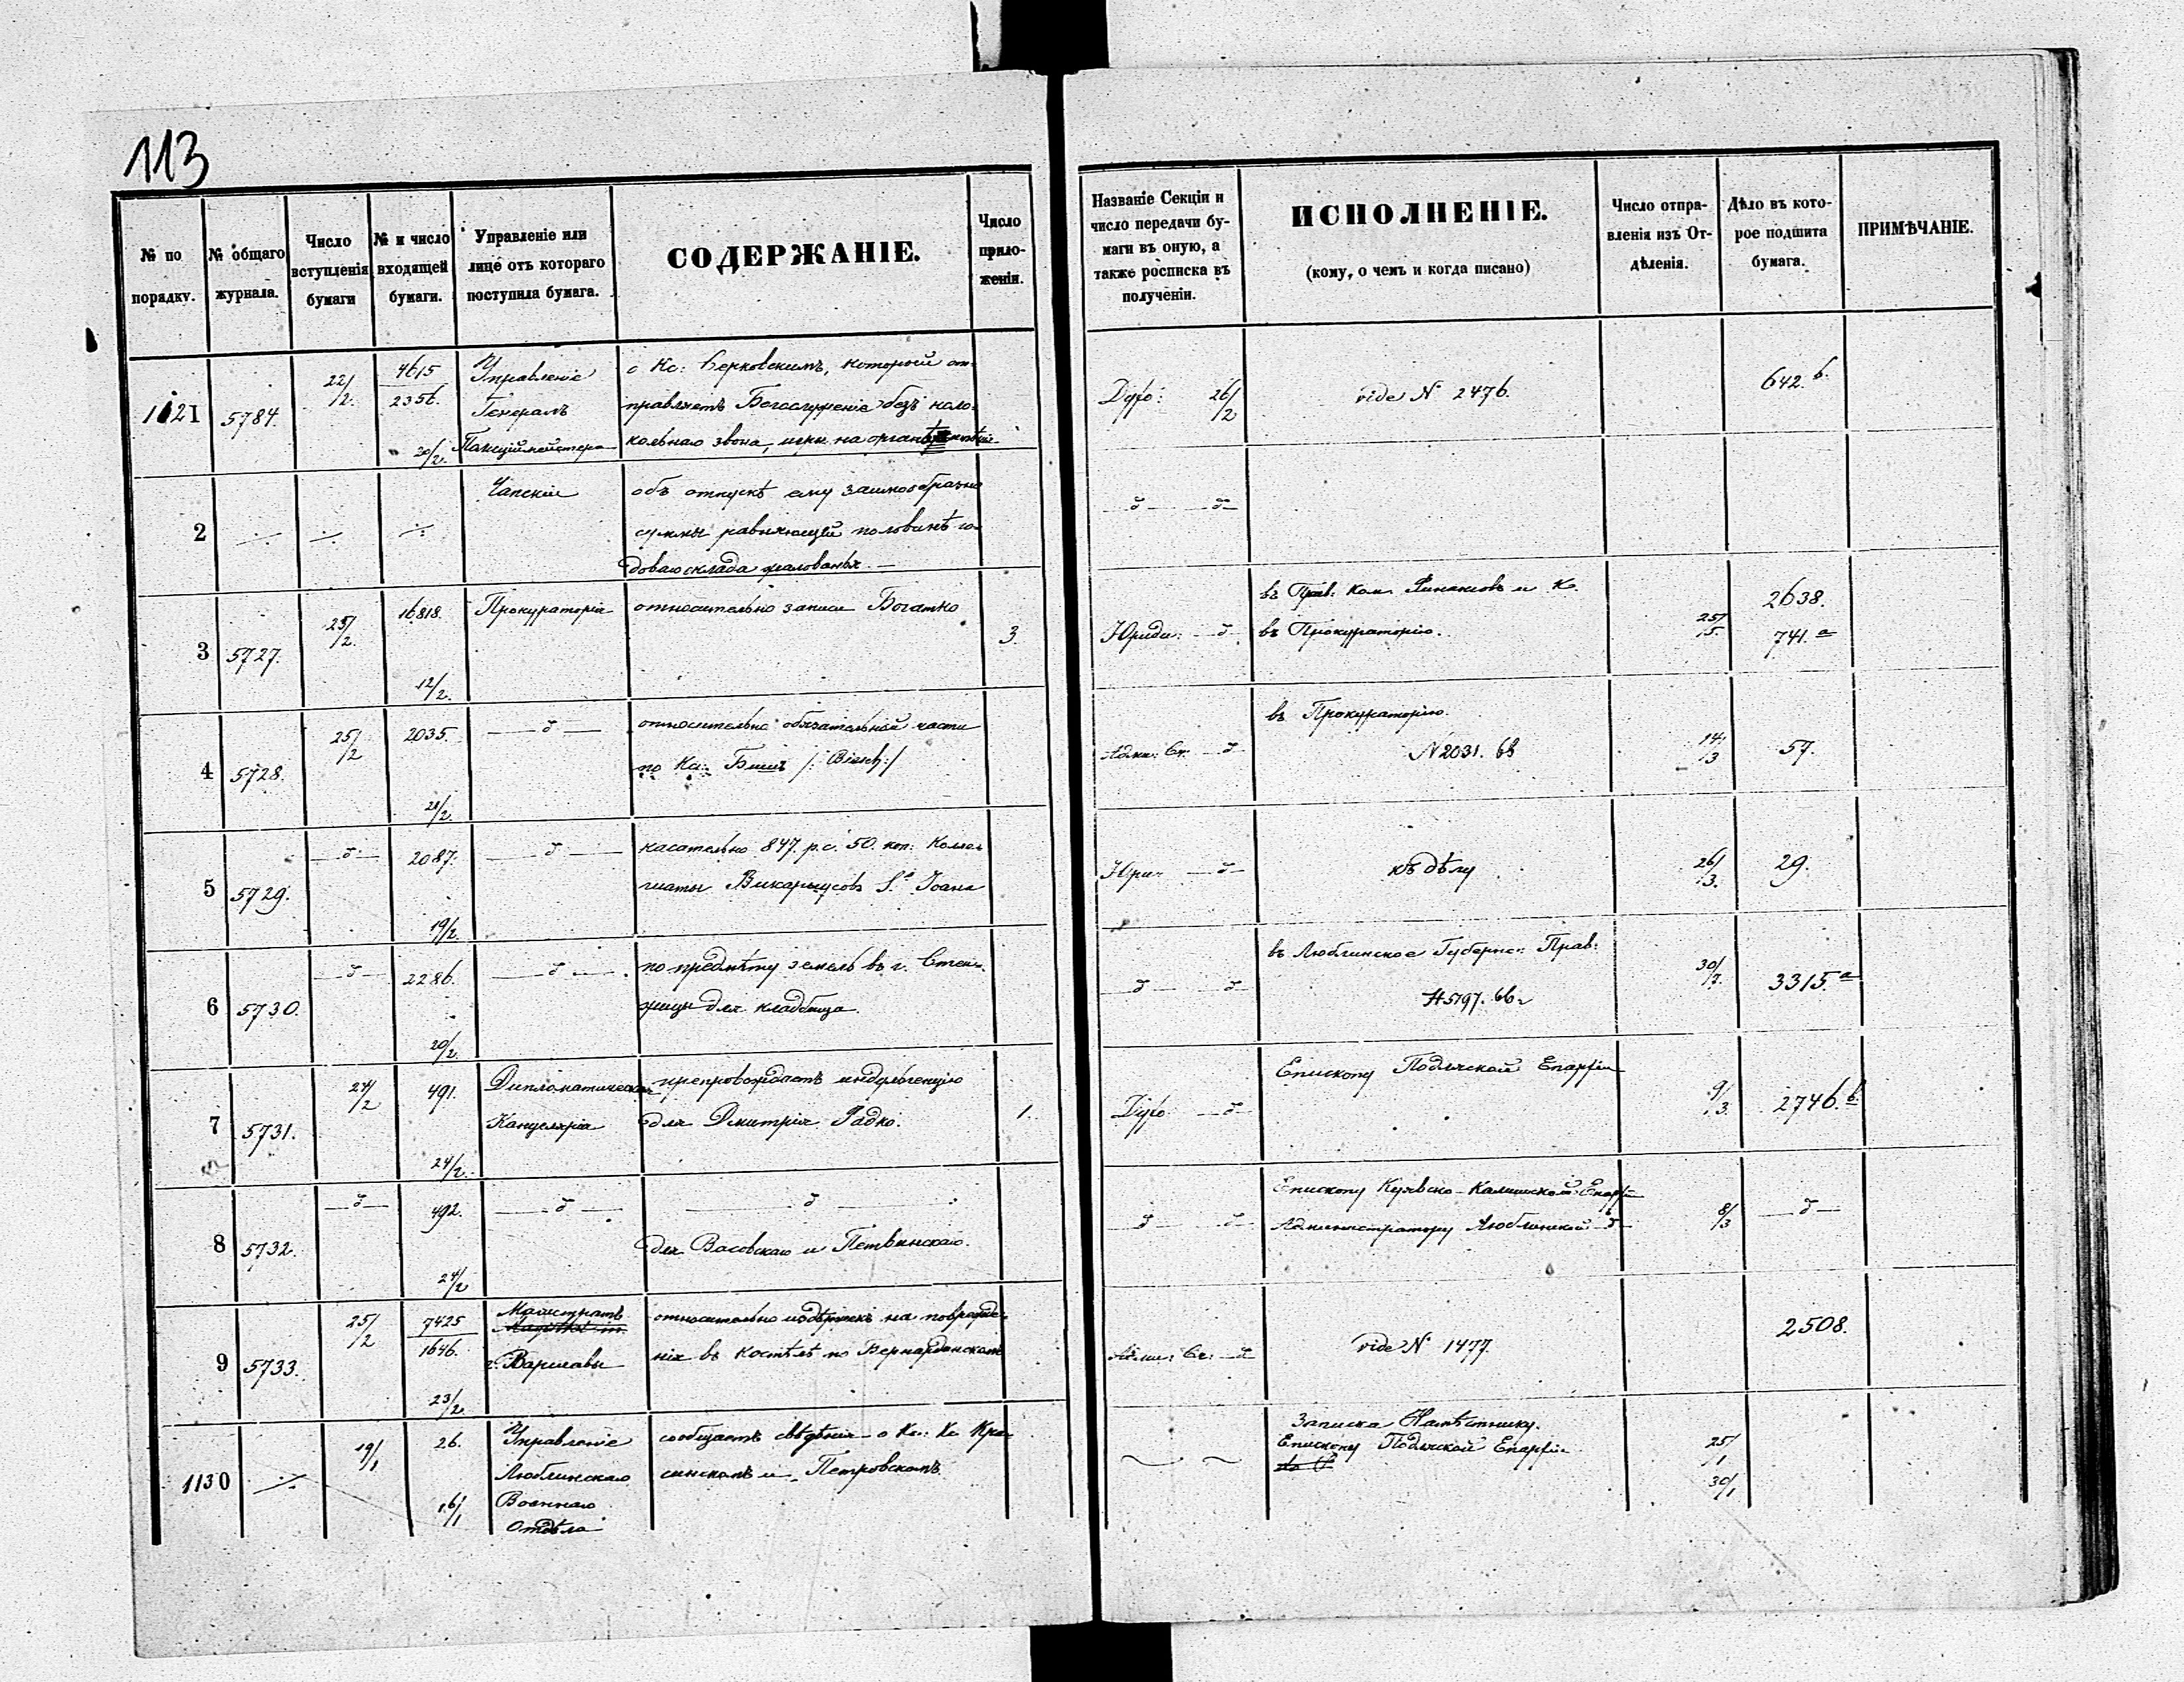 113
№ по порядку.
№ общаго журнала.
Число вступленія бумаги
№ и число входящей бумаги.
Управленіе или лице отъ котораго поступила бумага.
СОДЕРЖАНІЕ.
Число приложеніи.
Названіе Секціи и число передачи бумаги въ оную, а также росписка въ полученіи.
ИСПОЛНЕНІЕ.
(кому, о чемъ и когда писано)
Число отправленія изъ Отдѣленія.
Дѣло въ которое подшита бумага.
ПРИМѢЧАНІЕ.
1121 5784. 22/2. 4615
2356.
20/2.
Управленіе
Генералъ
Полиціймейстера
о Кс: Берковскимъ, который от-
правляетъ Богослуженіе безъ коло-
кольнаго звона, игры на органѣ
Духо: 26/2
vide N 2476.
642. b.
2
Чапскій
объ отпускѣ ему заимообразно
суммы равняющей половинѣ го-
доваго оклада жалованья
3 5727. 25/2. 16818.
12/2.
Прокураторія
относительно записи Богатко
3.
Юриди:
въ Прав: Ком. Финансовъ и К.
въ Прокураторію.
25/5.
2638.
741. a
4 5728. 25/2 2035.
21/2.
относительно обязательной части
по Кс: Бишъ /: Biesch :/
Адми: Ст.
въ Прокураторію.
N 2031. 68
14/3
57.
5 5729. 2087.
19/2.
касательно 847. р.с. 50. коп: Колле
гіаты Викарыусовъ Sº Іоана
Юри
къ дѣлу
26/3.
29.
6 5730. 2286.
20/2.
по предмѣту земель въ г. Стен-
жицы для кладбища.
въ Люблинское Губернс: Прав:
N 5797. 66 г
30/7.
3315. a
7 5731. 24/2 491.
24/2.
Дипломатическая
Канцелярія
препровождаетъ индульгенцію
для Дмитрія Радко.
1.
Духо
Епископу Подляской Епархіи
9/3.
2746. b.
8 5732. 492.
24/2
для Васовскаго и Петвинскаго.
Епископу Куявско-Калишской Епарх
Администратору Люблинской
8/3
9 5733. 25/2 7425
1646.
23/2
Магистратъ
г. Варшавы
относительно издержекъ на поврежде-
нія въ костелѣ по Бернардинскомъ
Адми: Ст:
vide N 1477.
2508.
1130 19/1 26.
16/1
Управленіе
Люблинскаго
Военнаго
Отдѣла
сообщаетъ свѣдѣнія о Кс: Кс Кра-
синскомъ и Петровскомъ.
Записка Намѣстнику.
Епископу Подляской Епархіи
25/1
30/1